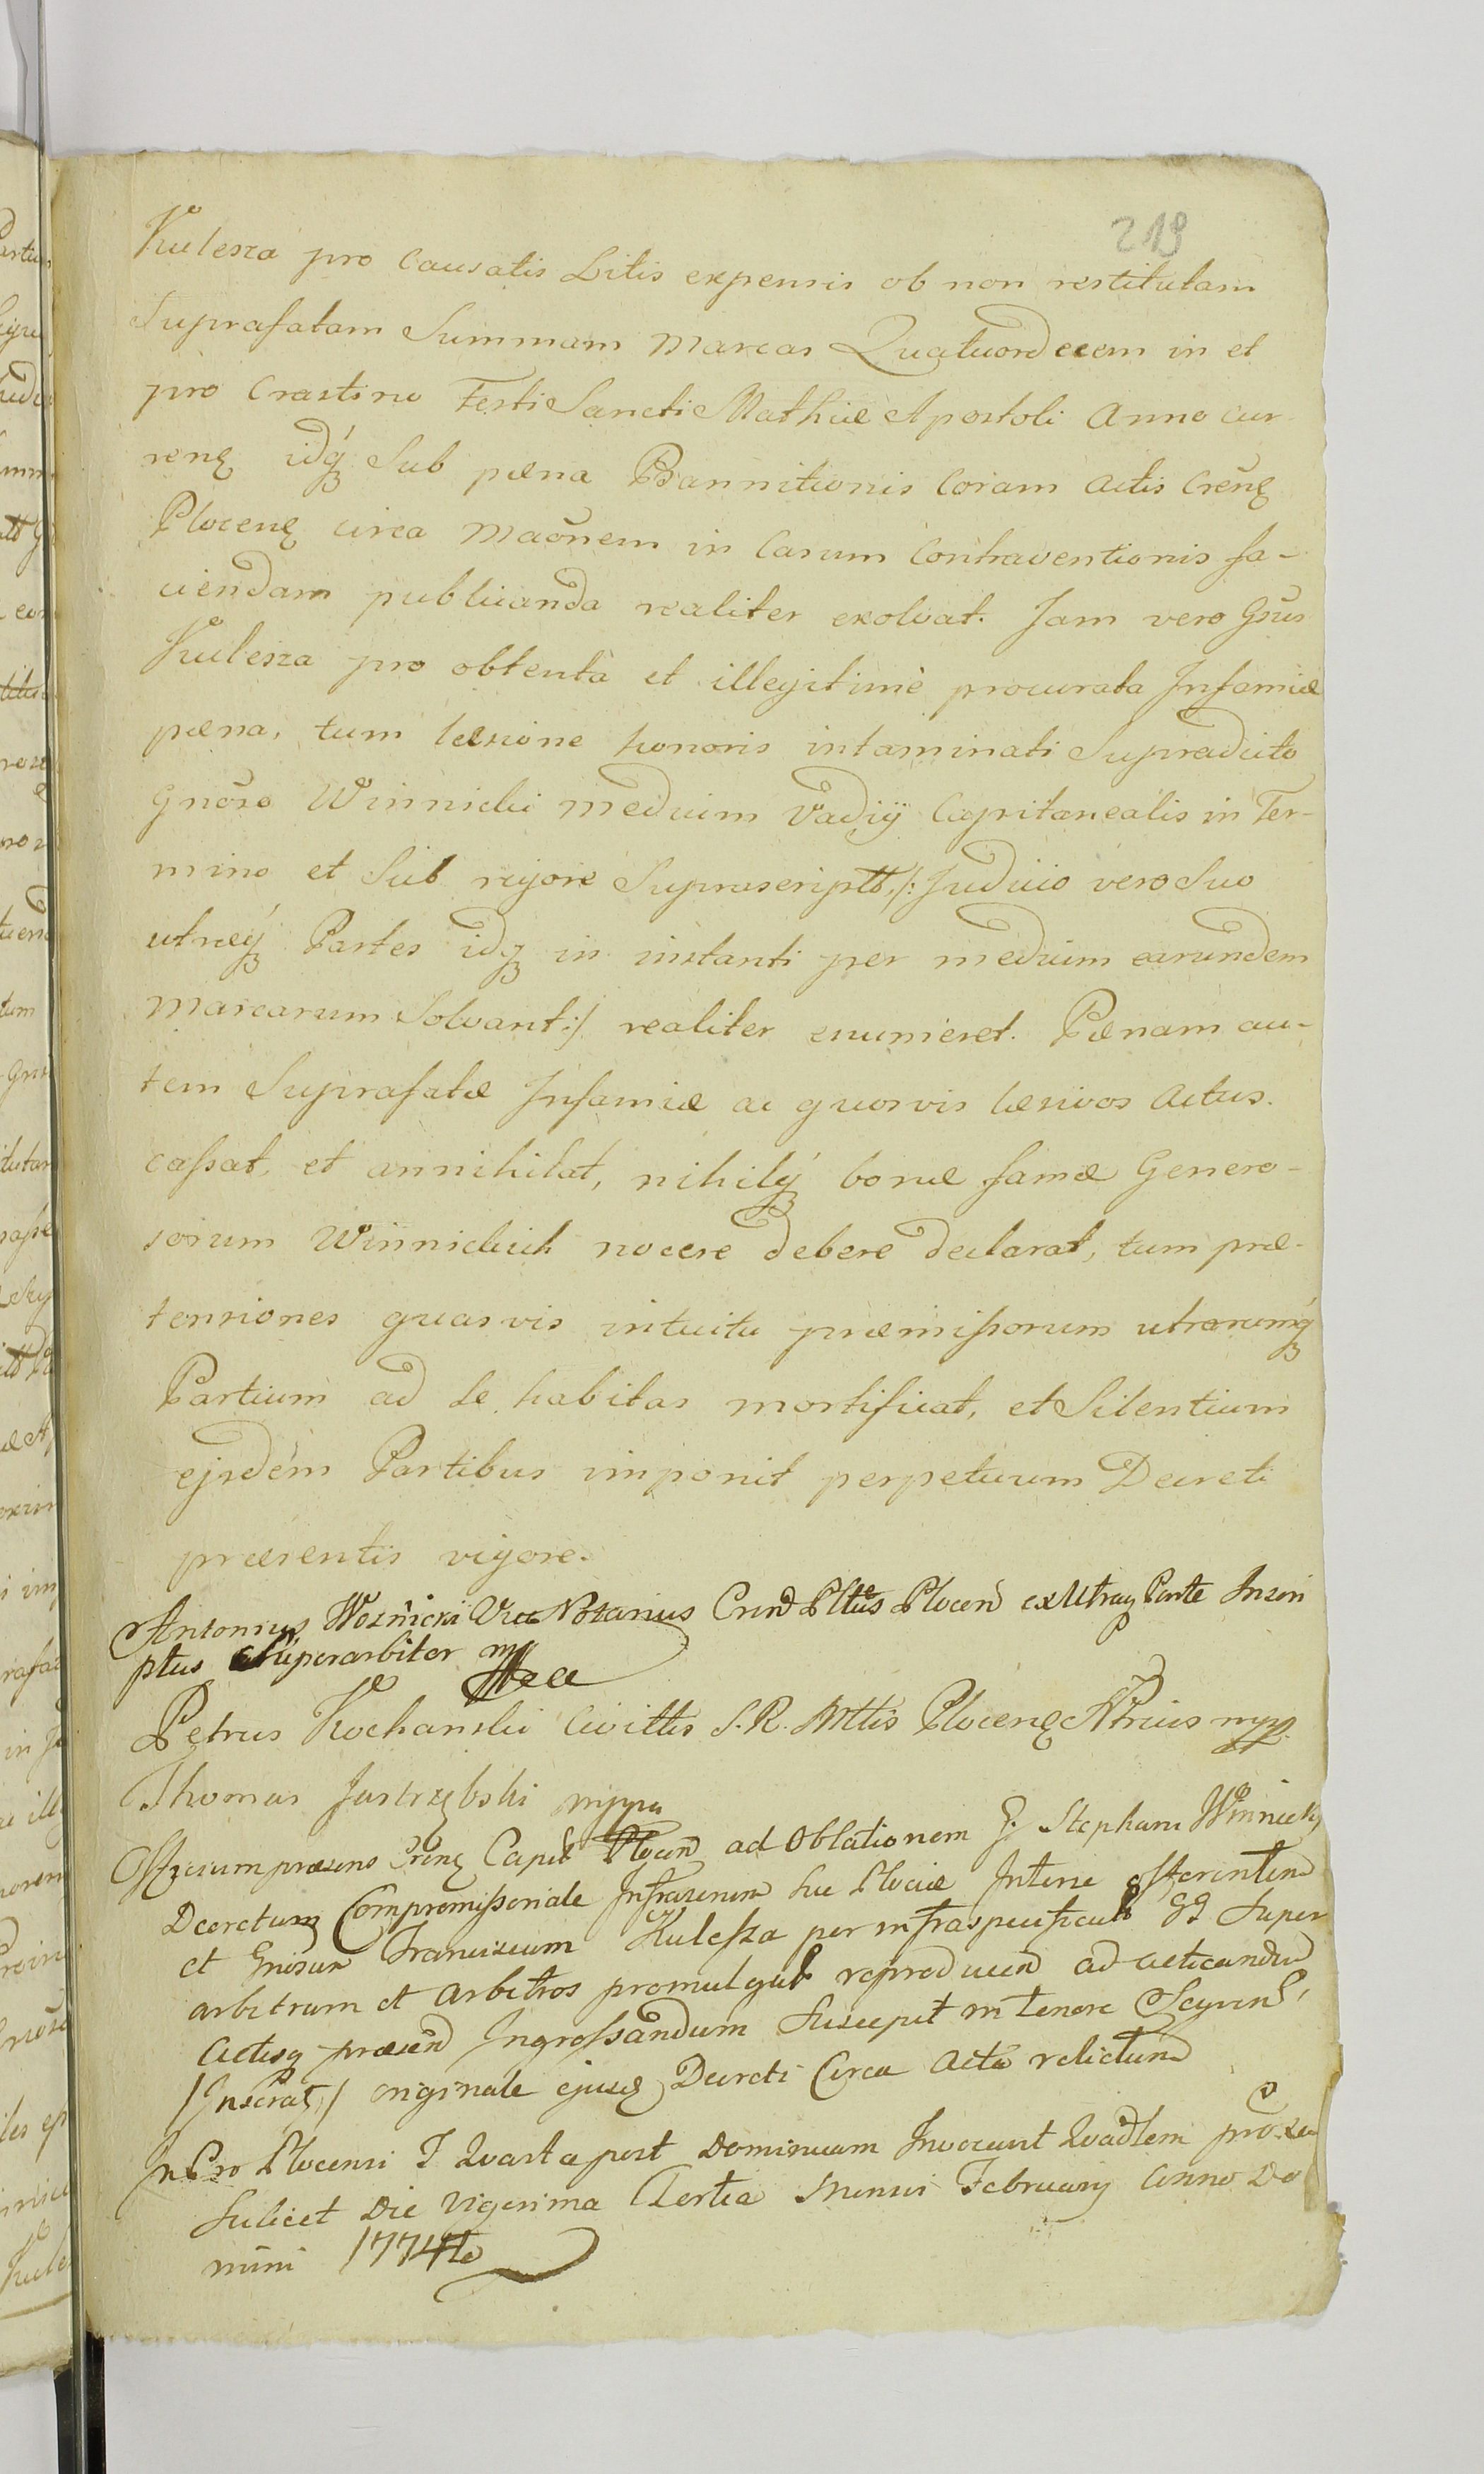 219
Kulesza pro causatis Litis expensis ob non restitutam
Suprafatam Summam Marcas Quatuordecem in et
pro Crastino Festi Sancti Mathiæ Apostoli Anno cur
renę idq́ꝫ Sub pæna Bannitionis Coram Actis Cr̄enę
Plocenę circa Mãonem in Casum Contraventionis fa-
ciendam publicanda realiter exolvat. Jam vero G̃sus
Kulesza pro obtenta et illegitimè procurata Infamiæ
pæna, tum læsione honoris intaminati Supradicto
Gnõso Winnicki medium Vadij Capitanealis in Ter-
mino et Sub rigore Suprascriptt, /: Judicio vero Suo
utræq́ꝫ Partes idqꝫ in instanti per medium earundem
Marcarum Solvant :/ realiter enumeret. Pænam au-
tem Suprafatæ Infamiæ ac quosvis læsivos Actus.
cassat, et annihilat, nihilq́ꝫ bonæ famæ Genero-
sorum Winnickich nocere debere declarat, tum præ-
tensiones quasvis intuitu præmissorum utrarumq́ꝫ
Partium ad se habitas mortificat, et Silentium
ejsdém Partibus imponit perpetuum Decreti
præsentis vigore.
Antonius Woznicki Vice Notarius Crend Pltus Plocen ex Utraqꝫ Parte Inscri
ptus Superarbiter mp
Petrus Kochanski Civittis S. R. Mttis Plocenę Ntrius mpp.
Thomas Jastrzębski mppa
Officium præsens Crenę Capit Plocen ad Oblationem G. Stephani Winnicky
Decretum Compromissoriale Infrascrium hic Plociæ Inter offerentem
et Gnosum Franciscum Kulessza per infraspecificatt Super
arbitrum et arbitros promulgatt reproducen ad acticandum
Actisqꝫ præsen Ingrossandum Suscepit in tenore Sequen
/ Inserat, / originale ejusdę Decreti Circa Acta relictum
In Cro Plocensi F. Quarta post Dominicam Invocavit Quadlem proxa
Scilicet Die Vigesima Tertia Mensis February Anno Do
mini 1774to